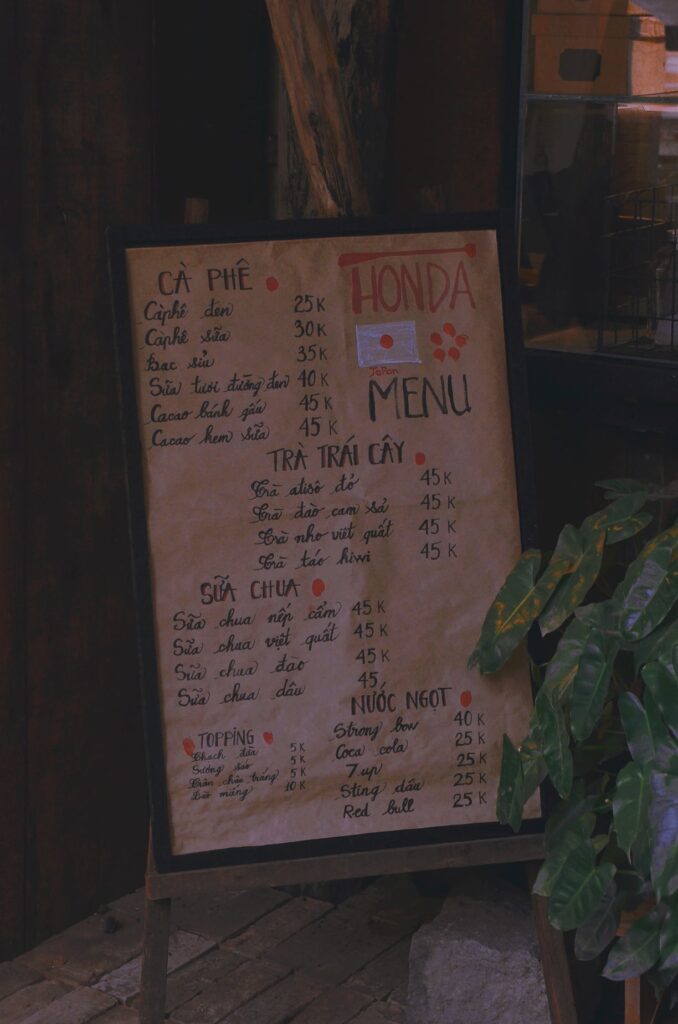 CÀ PHÊ
Càphê đen 25K
Càphê sữa 30K
Bạc sỉu 35K
Sữa tươi đường đen 40K
Cacao bánh gấu 45K
Cacao kem sữa 45K
HONDA
JaPan
MENU
TRÀ TRÁI CÂY
Trà atisô đỏ 45K
Trà đào cam sả 45K
Trà nho việt quất 45K
Trà táo kiwi 45K
SỮA CHUA
Sữa chua nếp cẩm 45K
Sữa chua việt quất 45K
Sữa chua đào 45K
Sữa chua dâu 45
TOPPING
Thạch dừa 5K
Sương sáo 5K
Trân châu trắng 5K
10K
NƯỚC NGỌT
Strong bow 40K
Coca cola 25K
7 up 25K
Sting dâu 25K
Red bull 25K